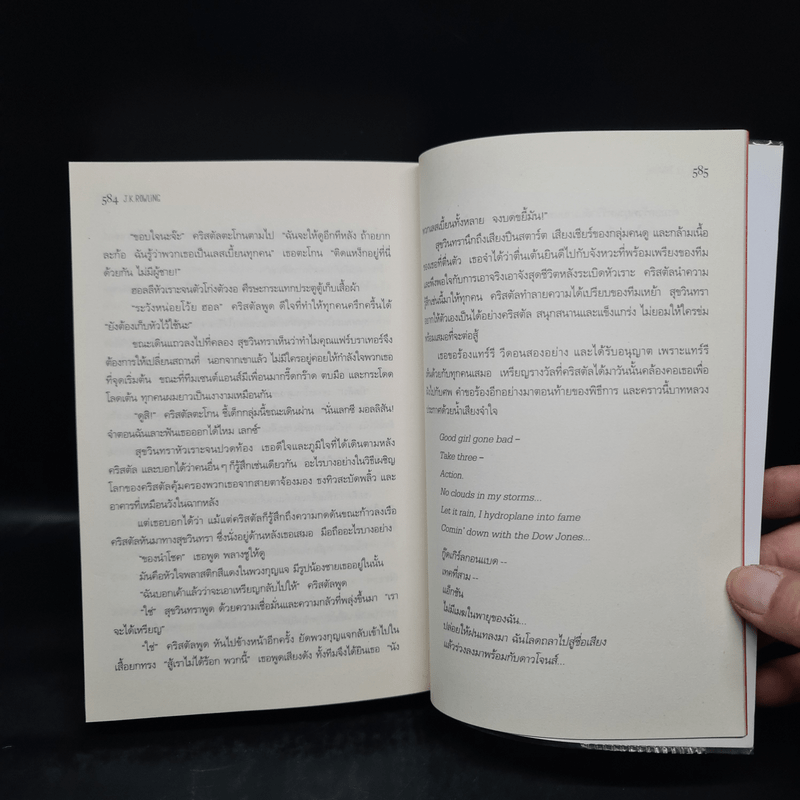 584 J.K. ROWLING
"ขอบใจนะจ๊ะ" คริสตัลตะโกนตามไป "ฉันจะให้ดูอีกทีหลัง ถ้าอยาก
ละก้อ ฉันรู้ว่าพวกเธอเป็นเลสเบี้ยนทุกคน" เธอตะโกน "ติดแหง็กอยู่ที่นี่
ด้วยกัน ไม่มีผู้ชาย!"
ฮอลลีหัวเราะจนตัวโก่งตัวงอ ศีรษะกระแทกประตูตู้เก็บเสื้อผ้า
"ระวังหน่อยโว้ย ฮอล" คริสตัลพูด ดีใจที่ทำให้ทุกคนครึกครื้นได้
"ยังต้องเก็บหัวไว้ใช้นะ"
ขณะเดินแถวลงไปที่คลอง สุขวินทราเห็นว่าทำไมคุณแฟร์บราเทอร์จึง
ต้องการให้เปลี่ยนสถานที่ นอกจากเขาแล้ว ไม่มีใครอยู่คอยให้กำลังใจพวกเธอ
ที่จุดเริ่มต้น ขณะที่ทีมเซนต์แอนส์มีเพื่อนมากรี๊ดกร๊าด ตบมือ และกระโดด
โลดเต้น ทุกคนผมยาวเป็นเงางามเหมือนกัน
"ดูสิ!" คริสตัลตะโกน ชี้เด็กกลุ่มนี้ขณะเดินผ่าน "นั่นเลกซี มอลลิสัน!
จำตอนฉันเลาะฟันเธอออกได้ไหม เลกซ์"
สุขวินทราหัวเราะจนปวดท้อง เธอดีใจและภูมิใจที่ได้เดินตามหลัง
คริสตัล และบอกได้ว่าคนอื่น ๆ ก็รู้สึกเช่นเดียวกัน อะไรบางอย่างในวิธีเผชิญ
โลกของคริสตัลคุ้มครองพวกเธอจากสายตาจ้องมอง ธงทิวสะบัดพลิ้ว และ
อาคารที่เหมือนวังในฉากหลัง
แต่เธอบอกได้ว่า แม้แต่คริสตัลก็รู้สึกถึงความกดดันขณะก้าวลงเรือ
คริสตัลหันมาทางสุขวินทรา ซึ่งนั่งอยู่ด้านหลังเธอเสมอ มือถืออะไรบางอย่าง
"ของนำโชค" เธอพูด พลางชูให้ดู
มันคือหัวใจพลาสติกสีแดงในพวงกุญแจ มีรูปน้องชายเธออยู่ในนั้น
"ฉันบอกเค้าแล้วว่าจะเอาเหรียญกลับไปให้" คริสตัลพูด
"ใช่" สุขวินทราพูด ด้วยความเชื่อมั่นและความกลัวที่พลุ่งขึ้นมา "เรา
จะได้เหรียญ"
"ใช่" คริสตัลพูด หันไปข้างหน้าอีกครั้ง ยัดพวงกุญแจกลับเข้าไปใน
เสื้อยกทรง "สู้เราไม่ได้ร้อก พวกนี้" เธอพูดเสียงดัง ทั้งทีมจึงได้ยินเธอ "นัง
585
เลสเบี้ยนทั้งหลาย จงบดขยี้มัน!"
สุขวินทรานึกถึงเสียงปืนสตาร์ต เสียงเชียร์ของกลุ่มคนดู และกล้ามเนื้อ
ของเธอที่ตื่นตัว เธอจำได้ว่าตื่นเต้นยินดีไปกับจังหวะที่พร้อมเพรียงของทีม
และพึงพอใจกับการเอาจริงเอาจังสุดชีวิตหลังระเบิดหัวเราะ คริสตัลนำความ
รู้สึกเช่นนี้มาให้ทุกคน คริสตัลทำลายความได้เปรียบของทีมเหย้า สุขวินทรา
อยากให้ตัวเองเป็นได้อย่างคริสตัล สนุกสนานและแข็งแกร่ง ไม่ยอมให้ใครข่ม
พร้อมเสมอที่จะต่อสู้
เธอขอร้องแทร์รี วีดอนสองอย่าง และได้รับอนุญาต เพราะแทร์รี
เห็นด้วยกับทุกคนเสมอ เหรียญรางวัลที่คริสตัลได้มาวันนั้นคล้องคอเธอเพื่อ
ไปกับศพ คำขอร้องอีกอย่างมาตอนท้ายของพิธีการ และคราวนี้บาทหลวง
ประกาศด้วยน้ำเสียงจำใจ
Good girl gone bad –
Take three –
Action.
No clouds in my storms...
Let it rain, I hydroplane into fame
Comin' down with the Dow Jones...
กู๊ดเกิร์ลกอนแบด --
เทคที่สาม --
แอ็กชัน
ไม่มีเมฆในพายุของฉัน...
ปล่อยให้ฝนเทลงมา ฉันโลดถลาไปสู่ชื่อเสียง
แล้วร่วงลงมาพร้อมกับดาวโจนส์...